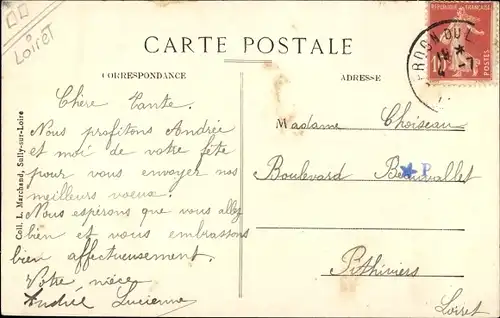 Loiret
CARTE POSTALE
RÉPUBLIQUE FRANÇAISE
10
POSTES
CORRESPONDANCE
ADRESSE
Coll. L. Marchand, Sully-sur-Loire
Chère Tante.
Nous profitons Andrée
et moi de votre fête
pour vous envoyer nos
meilleurs voeux.
Nous espérons que vous allez
bien et vous embrassons
bien affectueusement.
Votre nièce
Lucienne
Madame Choiseau
Boulevard
P
Pithiviers
Loiret